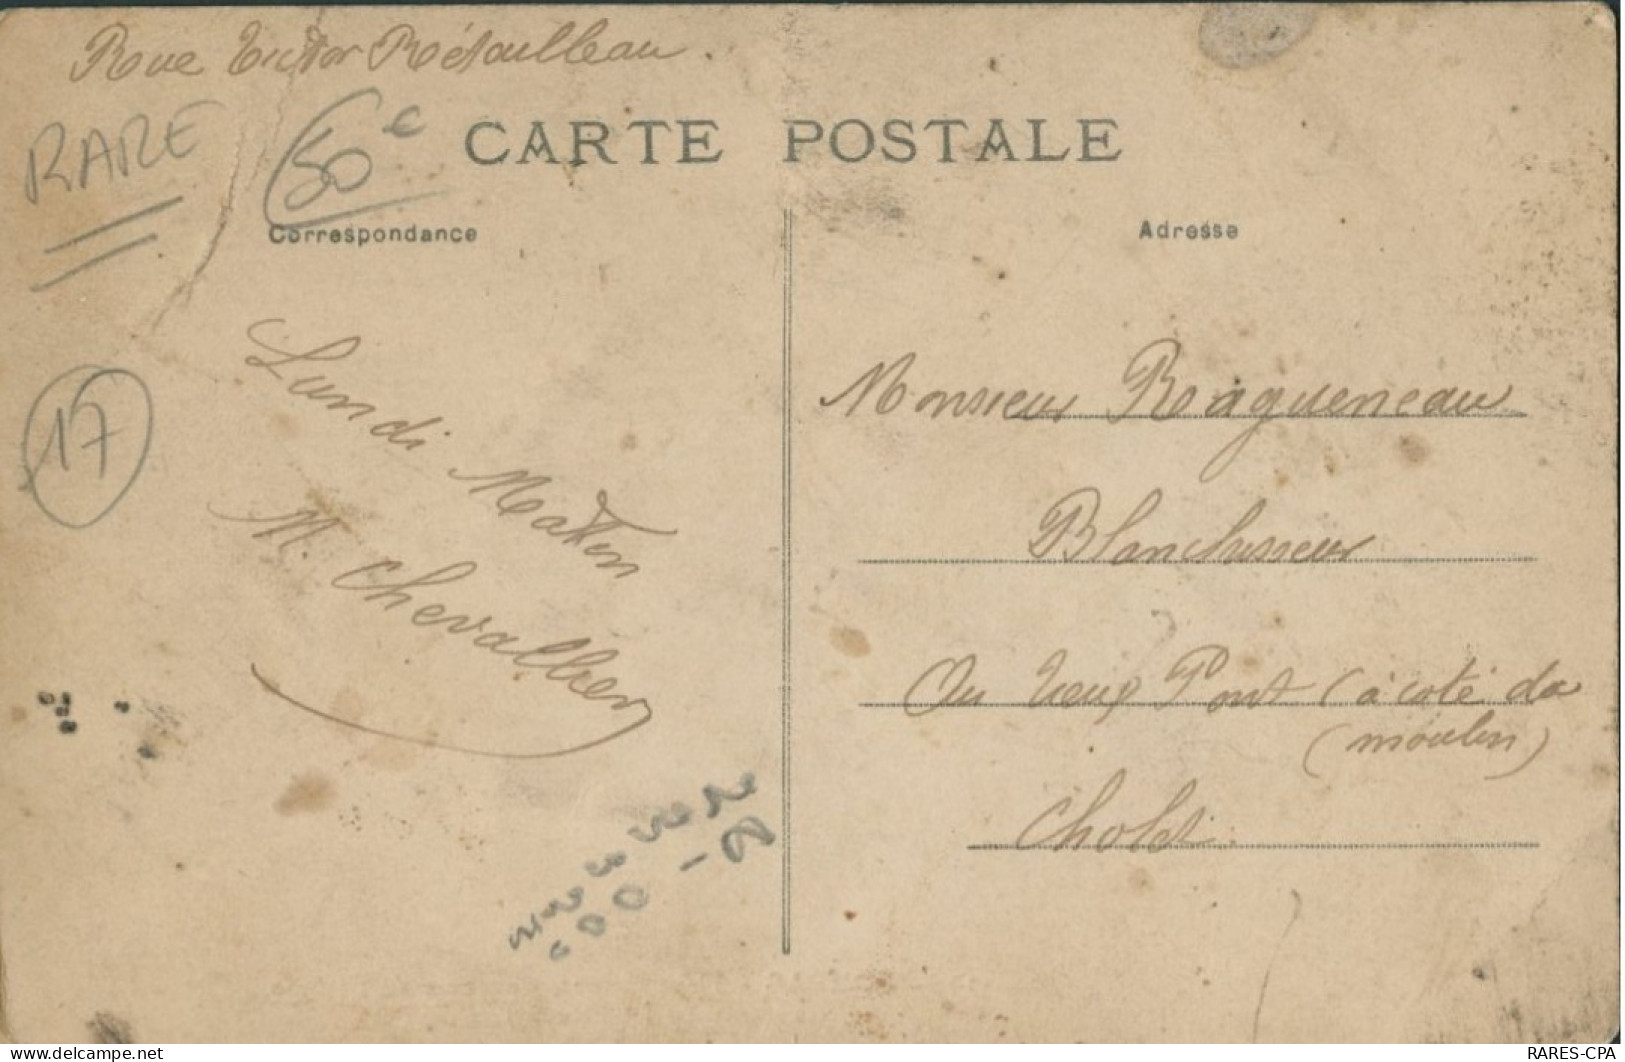 Rue Victor Rétailleau.
RARE
50 €
CARTE POSTALE
Correspondance
Adresse
17
Lundi Matin
M. Chevallier
Monsieur Ragueneau
Blanchisseur
Au Vieux Pont (à coté du
(moulin)
Cholet.
delcampe.net
RARES-CPA